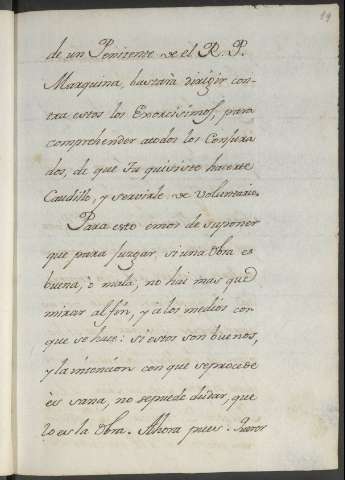 19
de un Penitente de el R. P.
Marquina, bastaria dirigir con-
tra estos los Exorcismos, para
comprehender atodos los Conjura
dos, de que Tu quisiste hacerte
Caudillo, y servirle de Voluntario.
Para esto emos de suponer
que para Juzgar, si una Obra es
buena, ò mala, no hai mas que
mirar al fin, y à los medios con
que se hace: si estos son buenos,
y la intencion con que se procede
ès sana, no se puede dudar, que
lo es la Obra. Ahora pues.